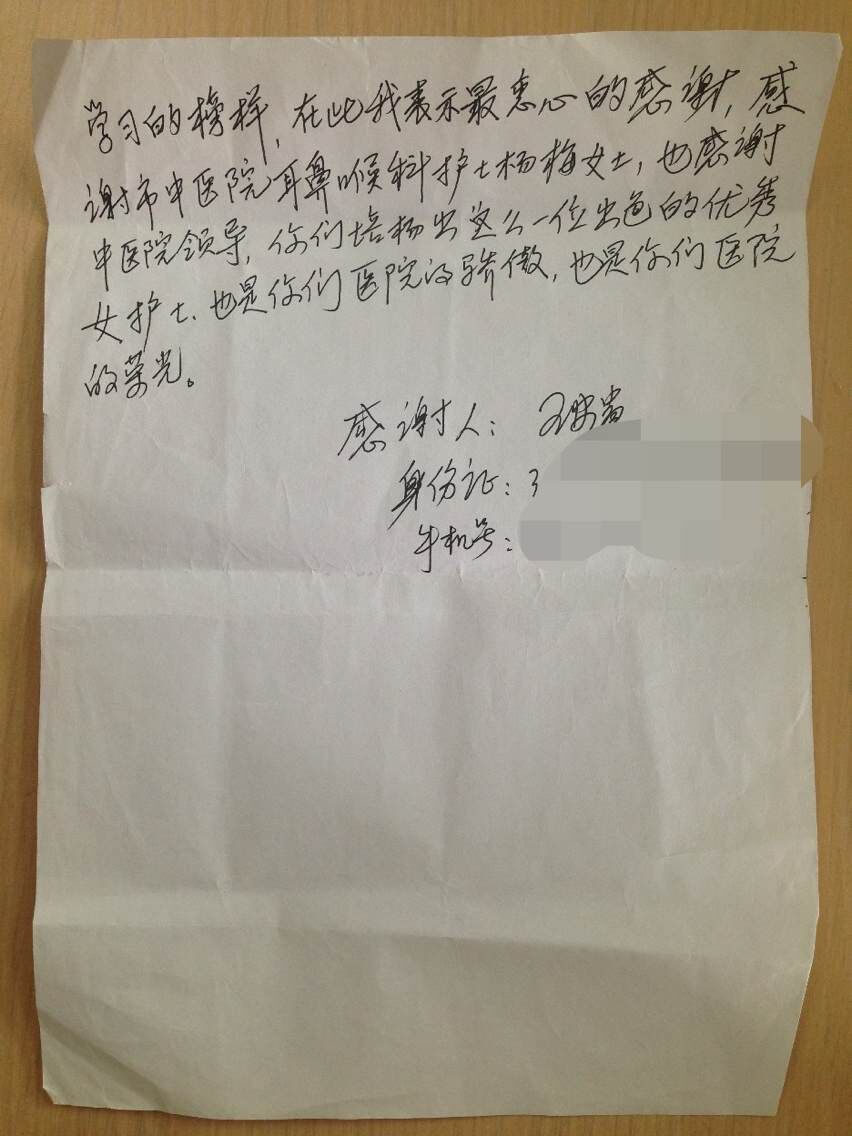 学习的榜样，在此我表示最忠心的感谢，感
谢市中医院耳鼻喉科护士杨梅女士，也感谢
中医院领导，你们培杨出这么一位出色的优秀
女护士、也是你们医院的骄傲，也是你们医院
的荣光。
感谢人：王
身份证：3
手机号：